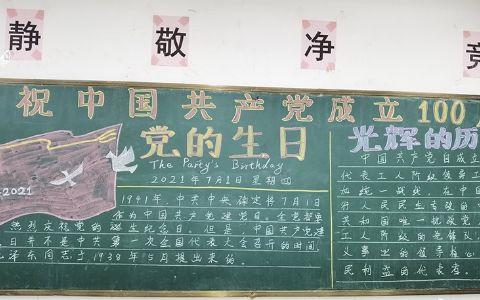 静 敬 净 竞
祝中国共产党成立100
党的生日
The Party's Birthday
2021年7月1日 星期四
1941年，中共中央确定将7月1日
作为中国共产党建党日，全党都
热烈庆祝党的诞生纪念日。但是，中国共产党建
日并不是中共第一次全国代表大会召开的时间
泽东同志于1938年5月提出来的。
2021
光辉的历
中国共产党自成立
代表工人阶级领导工
如统一战线，在中国
行人民民主专政的
共和国唯一执政党
工人阶级的先锋队
义事业的领导核心
民利益的代表者。